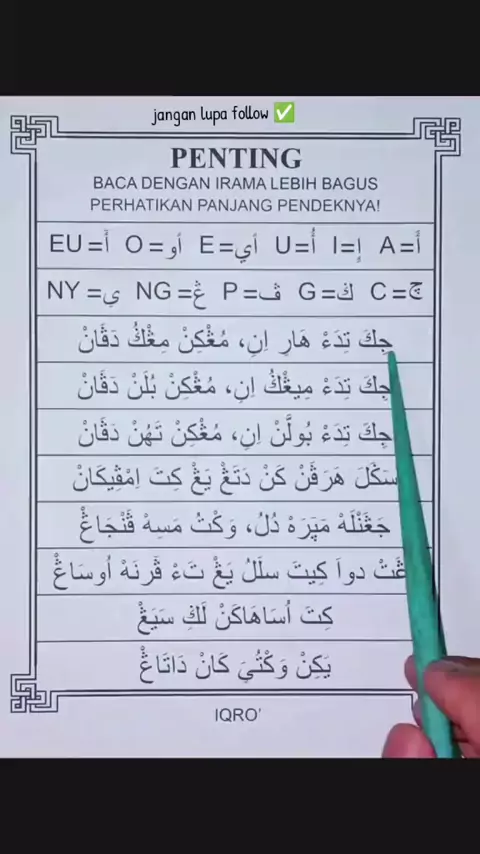 jangan lupa follow ✅
PENTING
BACA DENGAN IRAMA LEBIH BAGUS
PERHATIKAN PANJANG PENDEKNYA!
أَ = A إِ = I أُ = U أي = E أو = O أَ = EU
چ = C ڬ = G ڤ = P غْ = NG ي = NY
جِكَ تِدَءْ هَارِ اِنِ، مُغْكِنْ مِغْكُ دَڤَانْ
جِكَ تِدَءْ مِيغْكُ اِنِ، مُغْكِنْ بُلَنْ دَڤَانْ
جِكَ تِدَءْ بُولَنْ اِنِ، مُغْكِنْ تَهُنْ دَڤَانْ
سَكَلَ هَرَڤَنْ كَنْ دَتَغْ يَغْ كِتَ اِمْڤِيكَانْ
جَغْنَلَهْ مَيَرَهْ دُلُ، وَكْتُ مَسِهْ ڤَنْجَاغْ
دوآ كِيتَ سلَلُ يَغْ تَءْ ڤَرنَهْ اُوسَاغْ
كِتَ اُسَاهَاكَنْ لَكِ سَيَغْ
يَكِنْ وَكْتُيَ كَانْ دَاتَاغْ
IQRO'